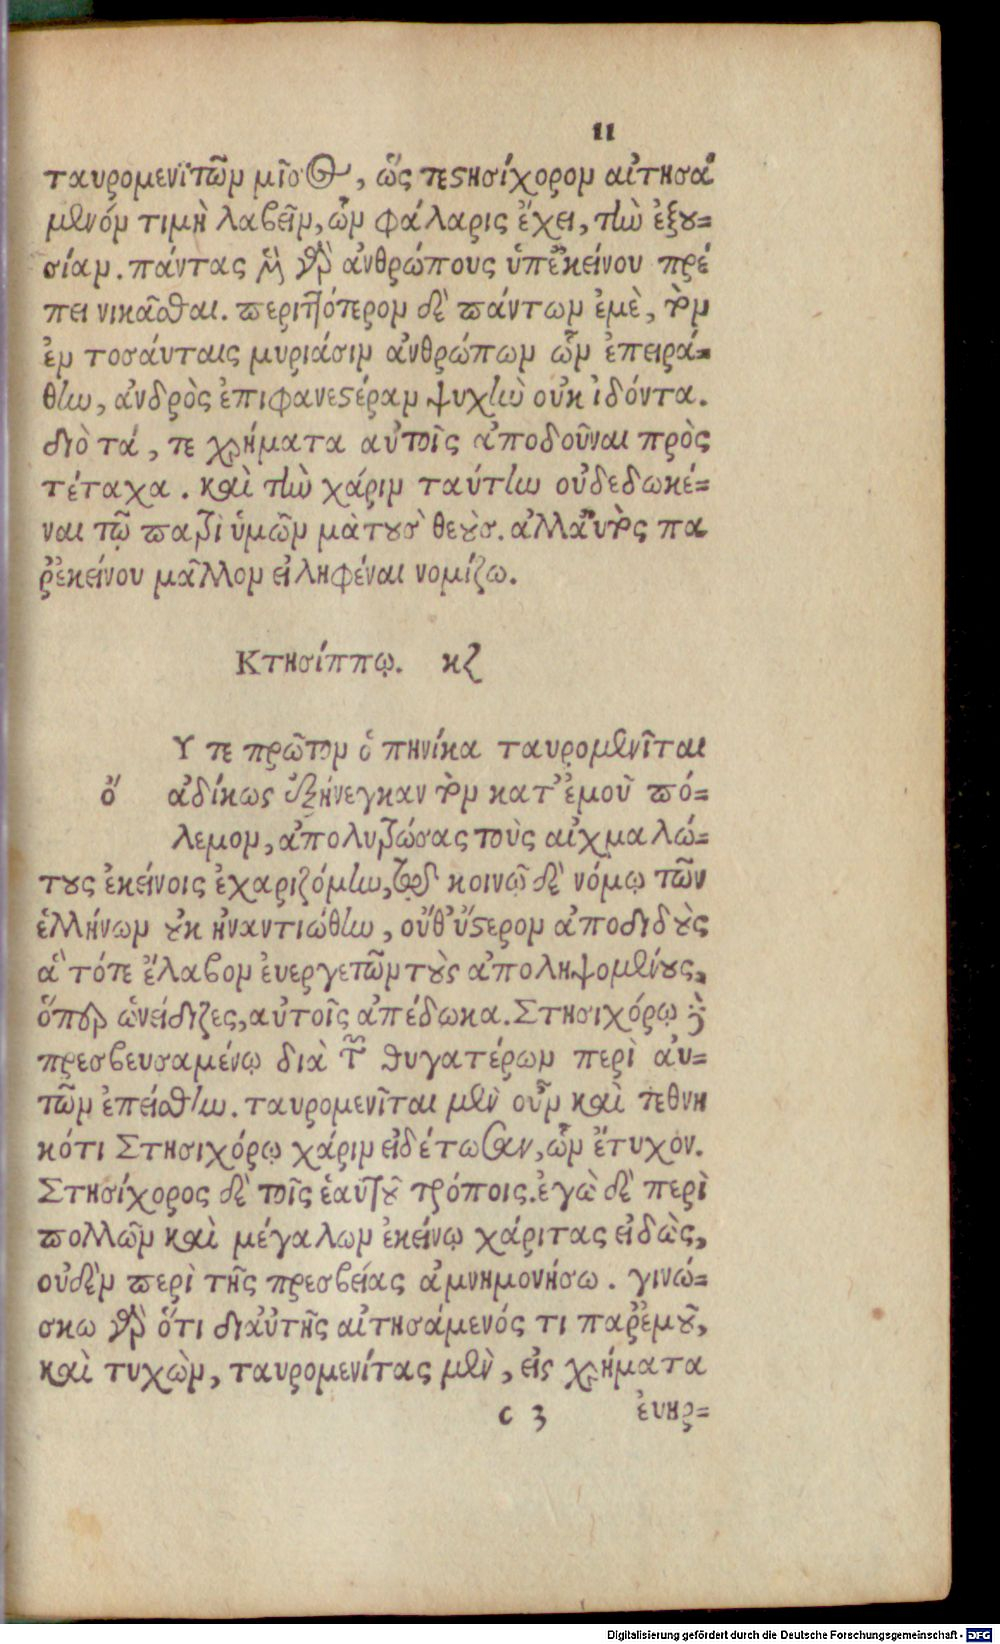 11
ταυρομενϊτῶν μῖσος, ὥς τε στησίχορον αἰτησά
μενόν τιμὴ λαβεῖν, ὧν φάλαρις ἔχει, τὴν ἐξου=
σίαν. πάντας μὴ γὰρ ἀνθρώπους ὑπ' ἐκείνου πρέ
πει νικᾶσθαι. περιττότερον δὲ πάντων ἐμὲ, τὸν
ἐν τοσάυταις μυριάσιν ἀνθρώπων ὧν ἐπειρά=
θην, ἀνδρὸς ἐπιφανεστέραν ψυχὴν οὐκ ἰδόντα.
διὸ τά, τε χρήματα αὐτοῖς ἀποδοῦναι πρὸς
τέταχα. καὶ τὴν χάριν ταύτην οὐδεδωκέ=
ναι τῷ παρ' ὑμῶν μὰ τοὺσ θεοὺσ. ἀλλ' αὐτὸς πα
ρ' ἐκείνου μᾶλλον εἰληφέναι νομίζω.
Κτησίππῳ. κζ
Υ τε πρῶτον ὁ πηνίκα ταυρομενῖται
ὄ ἀδίκως ἐξήνεγκαν τὸν κατ' ἐμοῦ πό=
λεμον, ἀπολυτρώσας τοὺς αἰχμαλώ=
τους ἐκείνοις ἐχαριζόμην, κοινῷ δὲ νόμῳ τῶν
ἑλλήνων οὐκ ἠναντιώθην, οὔθ' ὕστερον ἀποδιδοὺς
ἃ τότε ἔλαβον ἐυεργετῶν τοὺς ἀποληψομένους,
ὅπερ ὠνείδιζες, αὐτοῖς ἀπέδωκα. Στησιχόρῳ
πρεσβευσαμένῳ διὰ τῶν θυγατέρων περὶ αὐ=
τῶν ἐπείσθην. ταυρομενῖται μὲν οὖν καὶ τεθνη
κότι Στησιχόρῳ χάριν εἰδέτωσαν, ὧν ἔτυχον.
Στησίχορος δὲ τοῖς ἑαυτοῦ τρόποις. ἐγὼ δὲ περὶ
πολλῶν καὶ μέγαλων ἐκείνῳ χάριτας εἰδὼς,
οὐδὲν περὶ τῆς πρεσβείας ἀμνημονήσω. γινώ=
σκω γὰρ ὅτι δι' αὐτῆς αἰτησάμενός τι παρ' ἐμοῦ,
καὶ τυχὼν, ταυρομενίτας μὲν, εἰς χρήματα
c 3 ἐυηρ=
Digitalisierung gefördert durch die Deutsche Forschungsgemeinschaft - DFG